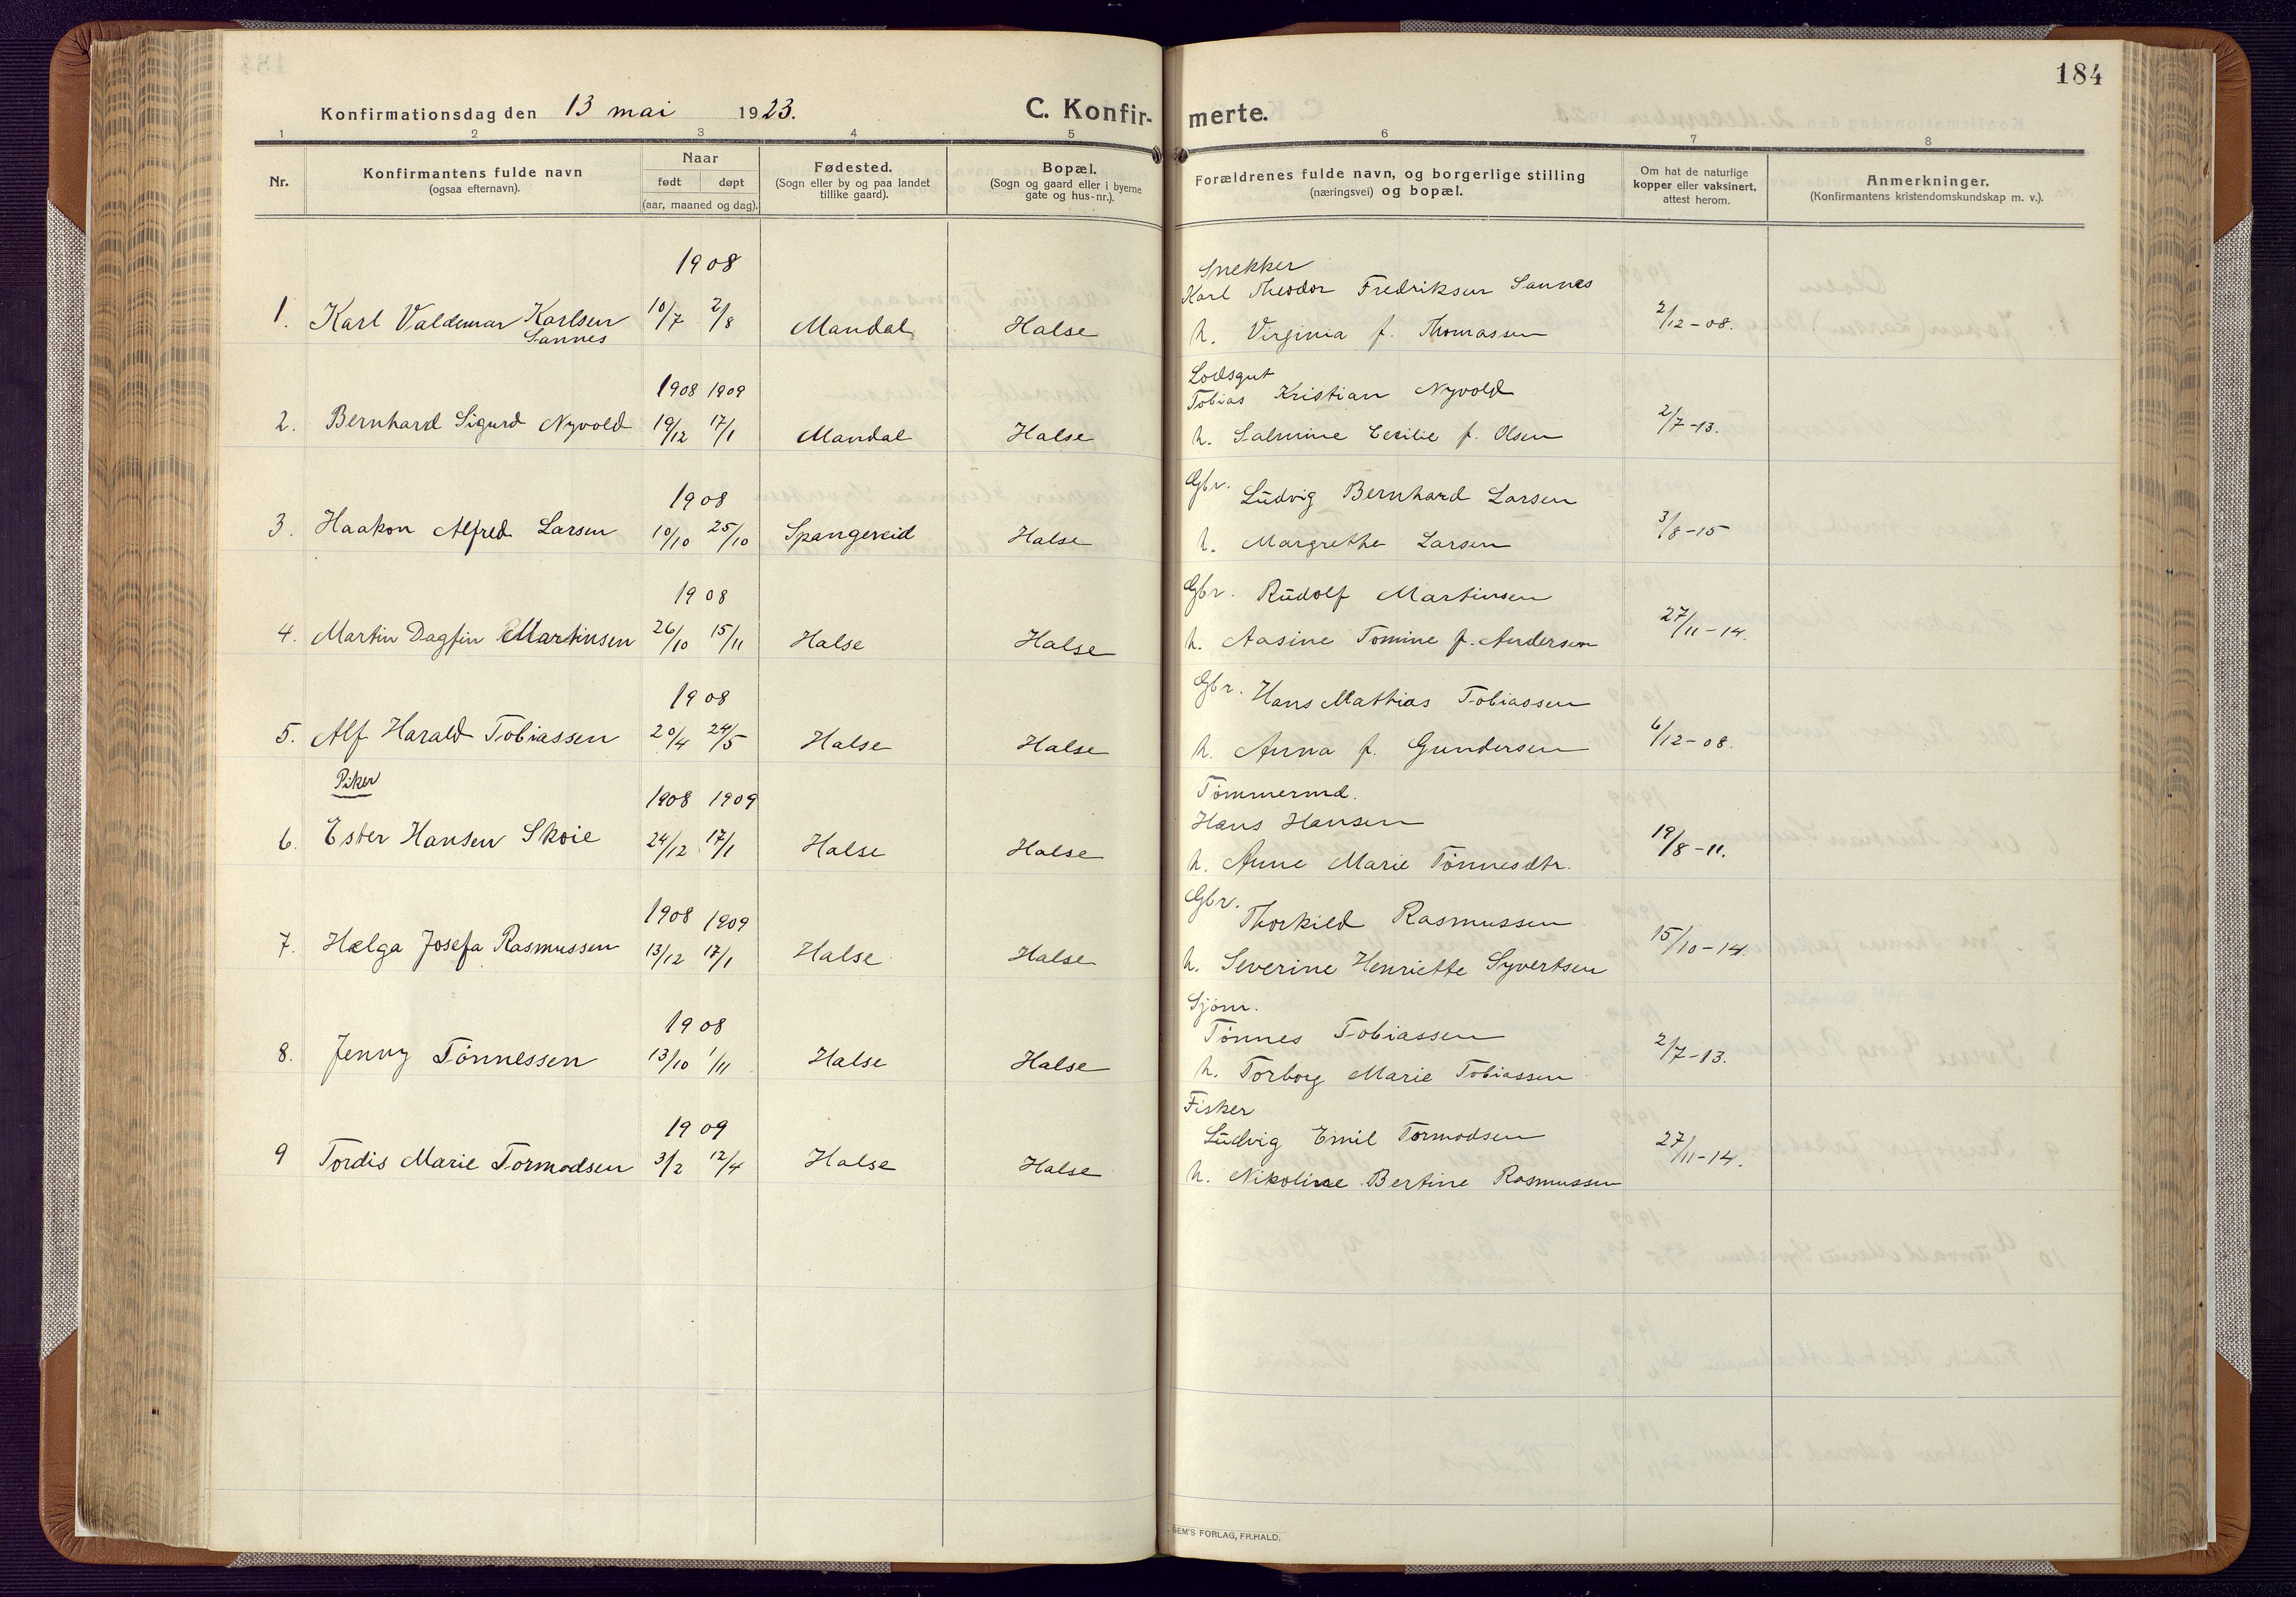 184
Konfirmationsdag den 13 mai 1923.
C. Konfir-
merte.
1 2 3 4 5 6 7 8
Nr.
Konfirmantens fulde navn
(ogsaa efternavn).
Naar
født døpt
(aar, maaned og dag).
Fødested.
(Sogn eller by og paa landet
tillike gaard).
Bopæl.
(Sogn og gaard eller i byerne
gate og hus-nr.).
Forældrenes fulde navn, og borgerlige stilling
(næringsvei) og bopæl.
Om hat de naturlige
kopper eller vaksinert,
attest herom.
Anmerkninger.
(Konfirmantens kristendomskundskap m. v.).
1908 Snekker
Karl Theodor Fredriksen Sannes
1. Karl Valdemar Karlsen 10/7 2/8 Mandal Halse h. Virginia f. Thomassen 2/12-08.
Sannes
1908 1909 Lodsgut
Tobias Kristian Nyvold
2. Bernhard Sigurd Nyvold 19/12 17/1 Mandal Halse h. Salmine Cecilie f. Olsen 2/7-13.
1908 Gbr. Ludvig Bernhard Larsen
3. Haakon Alfred Larsen 10/10 25/10 Spangereid Halse h. Margrethe Larsen 3/8-15
1908 Gbr. Rudolf Martinsen
4. Martin Dagfin Martinsen 26/10 15/11 Halse Halse h. Aasine Tomine f. Andersen 27/11-14.
1908 Gbr. Hans Mathias Tobiassen
5. Alf Harald Tobiassen 20/4 24/5 Halse Halse h. Anna f. Gundersen 6/12-08.
Piker
1908 1909 Tømmermd.
Hans Hansen
6. Ester Hansen Skoie 24/12 17/1 Halse Halse h. Anne Marie Tønnesdtr. 19/8-11.
1908 1909 Gbr. Thorkild Rasmussen
7. Hælga Josefa Rasmussen 13/12 17/1 Halse Halse h. Severine Henriette Syvertsen 15/10-14.
1908 Sjøm.
Tønnes Tobiassen
8. Jenny Tønnessen 13/10 1/11 Halse Halse h. Torborg Marie Tobiassen 2/7-13.
1909 Fisker
Ludvig Emil Tormodsen
9 Tordis Marie Tormodsen 3/2 12/4 Halse Halse h. Nikoline Bertine Rasmussen 27/11-14.
SEM'S FORLAG, FR.HALD.